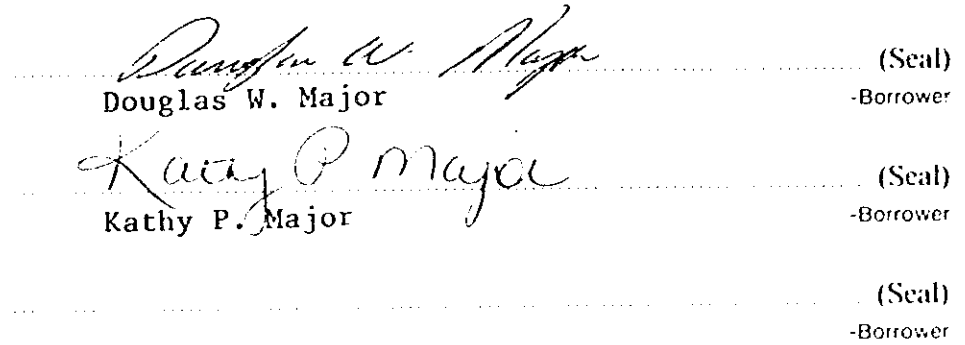 Douglas W. Major (Seal)
Douglas W. Major -Borrower
Kathy P Major (Seal)
Kathy P. Major -Borrower
(Seal)
-Borrower